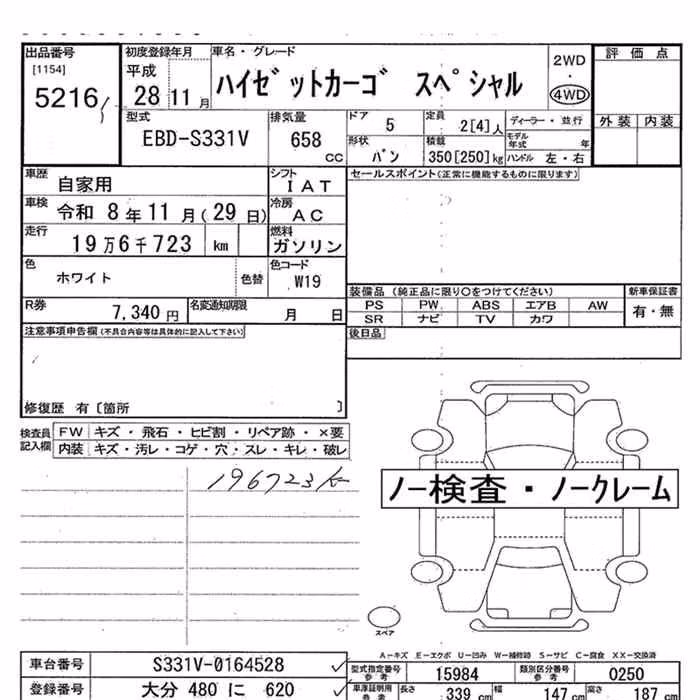 出品番号 初度登録年月 車名・グレード 2WD 評価点
[1154] 平成 ・
5216 28 11月 ハイゼットカーゴ スペシャル 4WD
型式 排気量 ドア 5 定員 2[4]人 ディーラー・並行 外装 内装
EBD-S331V 658 CC 形状 バン 積載 350[250]kg モデル年式 年
ハンドル 左・右
車歴 自家用 シフト IAT セールスポイント(正常に機能するものに限ります)
車検 令和 8年11月(29日) 冷房 AC
走行 19万6千723 km 燃料 ガソリン
色 ホワイト 色替 色コード W19
装備品 (純正品に限り○をつけてください) 新車保証書
R券 7,340円 名変通知期限 月 日 PS PW ABS エアB AW 有・無
SR ナビ TV カワ
注意事項申告欄(不具合内容等は具体的に記入して下さい) 後日品
修復歴 有〔箇所 〕
検査員記入欄 FW キズ・飛石・ヒビ割・リペア跡・×要
内装 キズ・汚レ・コゲ・穴・スレ・キレ・破レ
196723k
ノー検査・ノークレーム
スペア
A-キズ E-エクボ U-凹み W-補修跡 S-サビ C-腐食 XX-交換済
車台番号 S331V-0164528 型式指定番号 参考 15984 類別区分番号 参考 0250
登録番号 大分 480 に 620 車庫証明用 参考 長さ 339 cm 幅 147 cm 高さ 187 cm